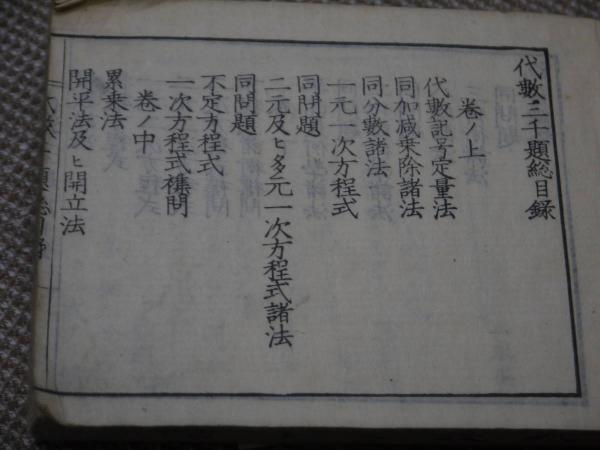 代數三千題総目録
卷ノ上
代數記号定量法
同加减乗除諸法
同分數諸法
一元一次方程式
同問題
二元及ヒ多元一次方程式諸法
同問題
不定方程式
一次方程式襍問
卷ノ中
累乗法
開平法及ヒ開立法